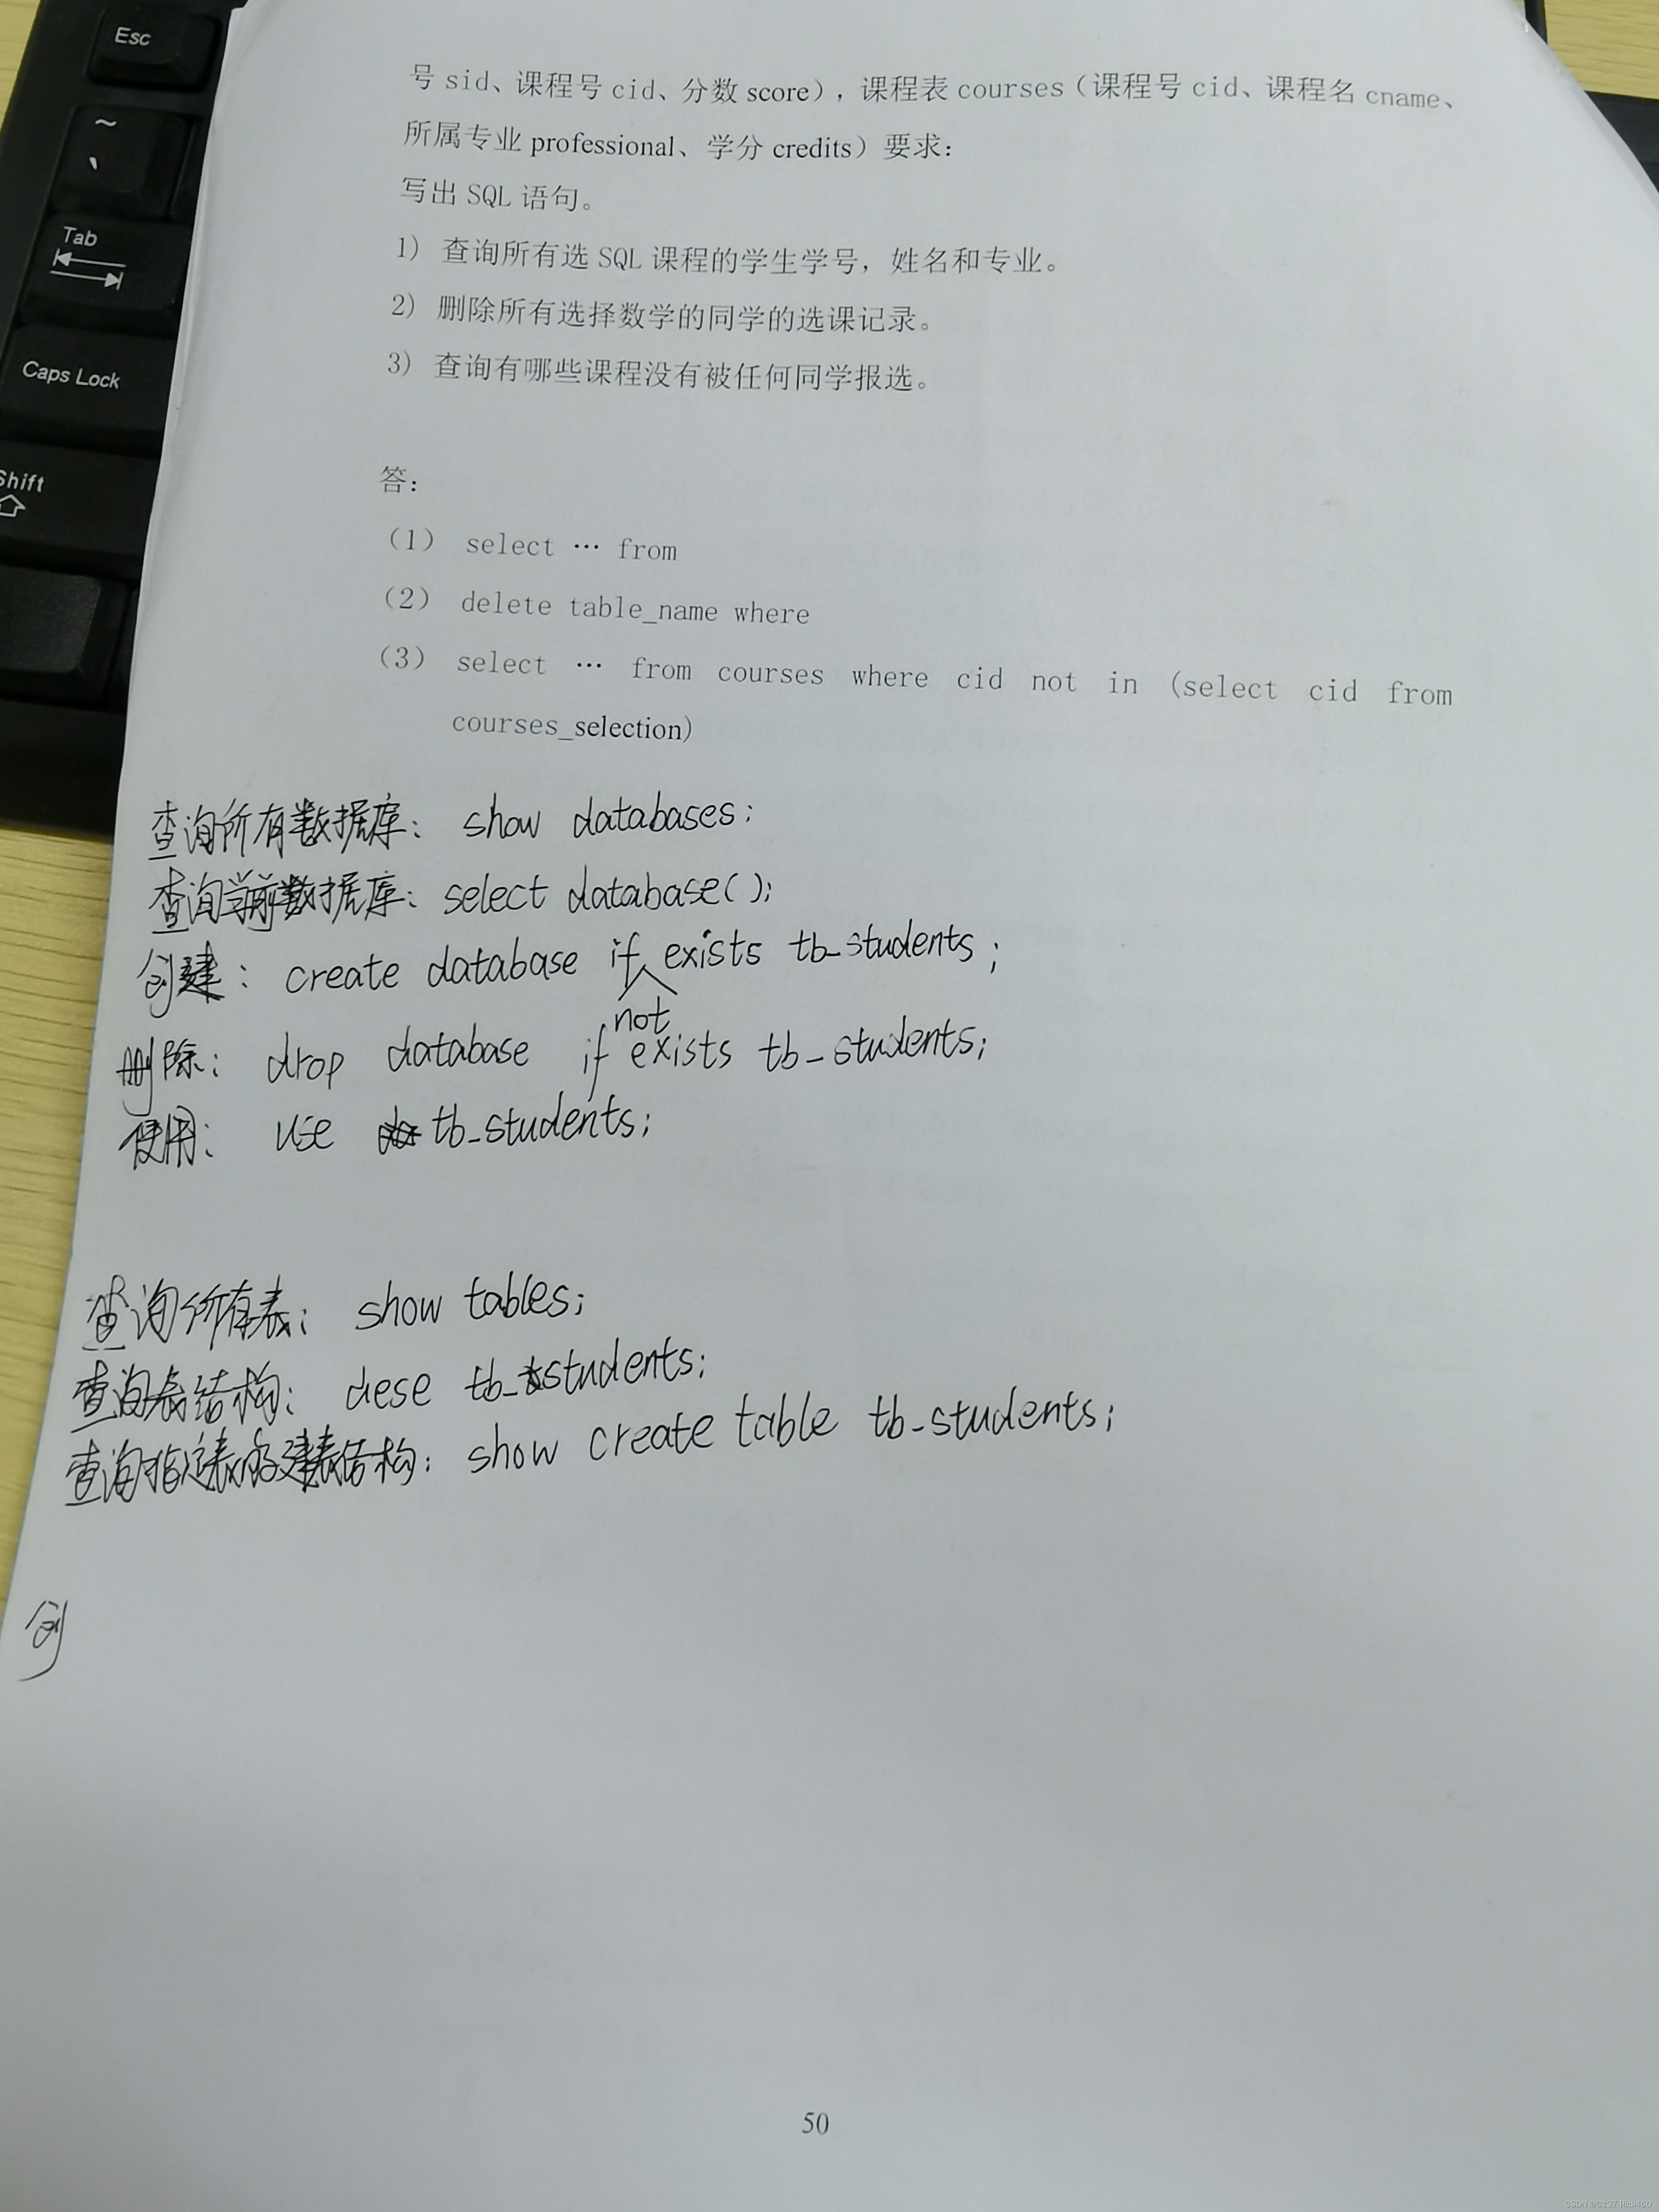 Esc
~
`
Tab
Caps Lock
Shift
号 sid、课程号 cid、分数 score），课程表 courses（课程号 cid、课程名 cname、
所属专业 professional、学分 credits）要求：
写出 SQL 语句。
1） 查询所有选 SQL 课程的学生学号，姓名和专业。
2） 删除所有选择数学的同学的选课记录。
3） 查询有哪些课程没有被任何同学报选。
答：
（1） select … from
（2） delete table_name where
（3） select … from courses where cid not in (select cid from
courses_selection)
查询所有数据库： show databases;
查询当前数据库： select database();
创建： create database if not exists tb_students ;
删除： drop database if exists tb_students;
使用： use tb_students;
查询所有表： show tables;
查询表结构： dese tb_students;
查询指定表的建表结构： show create table tb_students;
创
50
CSDN @C137 Rick460